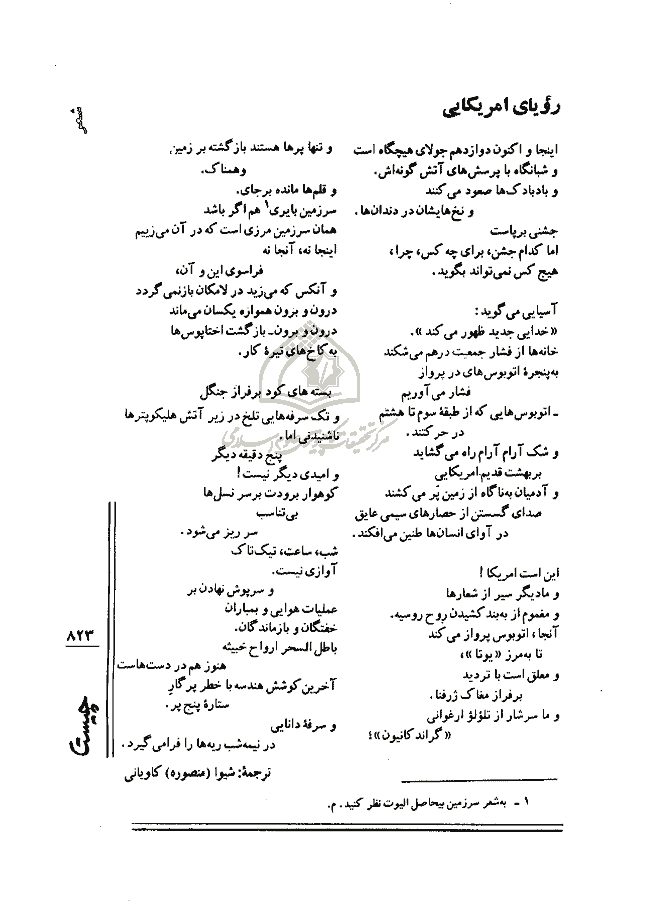 شعر
رؤیای امریکایی
اینجا و اکنون دوازدهم جولای هیچگاه است
و شبانگاه با پرسش‌های آتش گونه‌اش.
و بادبادک‌ها صعود می‌کنند
و نخ‌هایشان در دندان‌ها.
جشنی برپاست
اما کدام جشن، برای چه کس، چرا،
هیچ کس نمی‌تواند بگوید.
آسیایی می‌گوید:
«خدایی جدید ظهور می‌کند».
خانه‌ها از فشار جمعیت درهم می‌شکند
به‌پنجرهٔ اتوبوس‌های در پرواز
فشار می‌آوریم
ـ اتوبوس‌هایی که از طبقهٔ سوم تا هشتم
در حرکتند.
و شک آرام آرام راه می‌گشاید
بر بهشت قدیم امریکایی
و آدمیان به‌ناگاه از زمین پر می‌کشند
صدای گسستن از حصارهای سیمی عایق
در آوای انسان‌ها طنین می‌افکند.
این است امریکا!
و ما دیگر سیر از شعارها
و مغموم از به‌بند کشیدن روح روسیه.
آنجا، اتوبوس پرواز می‌کند
تا به‌مرز «یوتا»،
و معلق است با تردید
برفراز مغاک ژرفنا.
و ما سرشار از تلؤلؤ ارغوانی
«گراند کانیون»؛
و تنها پرها هستند بازگشته بر زمین
وهمناک.
و قلم‌ها مانده برجای.
سرزمین بایری۱ هم اگر باشد
همان سرزمین مرزی است که در آن می‌زییم
اینجا نه، آنجا نه
فراسوی این و آن،
و آنکس که می‌زید در لامکان بازنمی گردد
درون و برون همواره یکسان می‌ماند
درون و برون ـ بازگشت اختاپوس‌ها
به کاخ‌های تیرهٔ کار.
بسته‌های کود برفراز جنگل
و تک سرفه‌هایی تلخ در زیر آتش هلیکوپترها
ناشنیدنی اما.
پنج دقیقه دیگر
و امیدی دیگر نیست!
کوهوار برودت برسر نسل‌ها
بی‌تناسب
سر ریز می‌شود.
شب، ساعت، تیک‌تاک
آوازی نیست.
و سرپوش نهادن بر
عملیات هوایی و بمباران
خفتگان و بازماندگان.
باطل السحر ارواح خبیثه
هنوز هم در دست‌هاست
آخرین کوشش هندسه با خطر پرگار
ستارهٔ پنج پر.
و سرفهٔ دانایی
در نیمه‌شب ریه‌ها را فرامی گیرد.
ترجمهٔ: شیوا (منصوره) کاویانی
۱ ـ به‌شعر سرزمین بیحاصل الیوت نظر کنید. م.
۸۲۳
چیستا
مرکز تحقیقات کامپیوتری علوم اسلامی